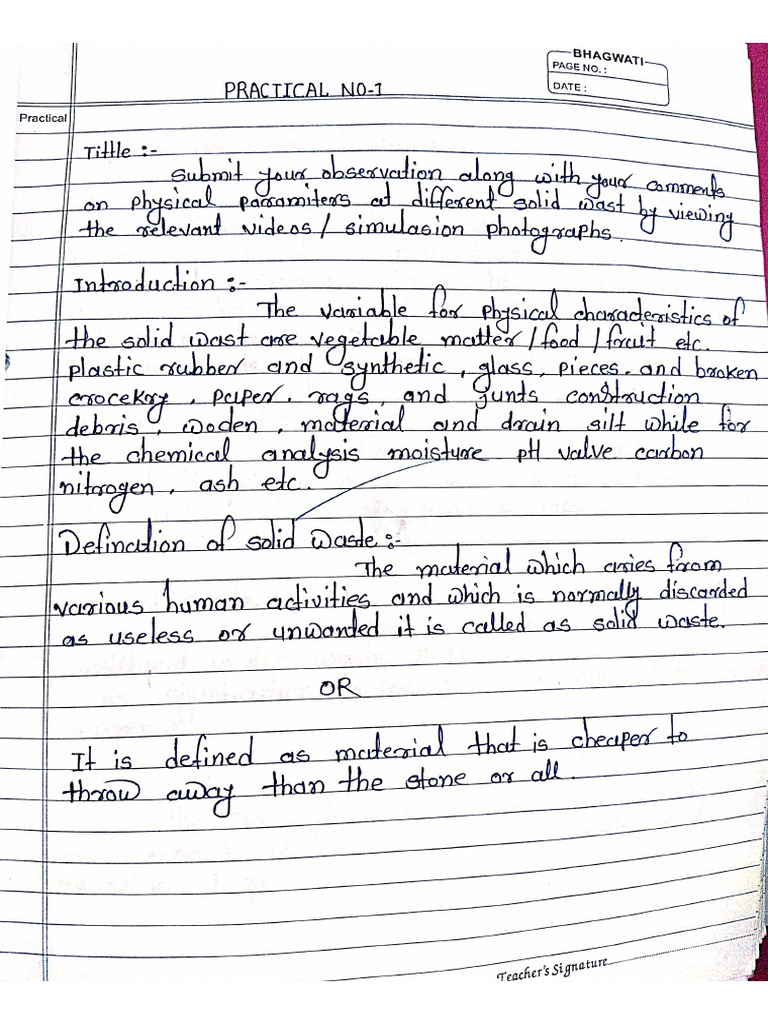 BHAGWATI
PAGE NO. :
DATE :
PRACTICAL NO-1
Practical
Tittle :-
Submit your observation along with your comments
on physical paramiters at different solid wast by viewing
the relevant videos / simulasion photographs.
Introduction :-
The variable for physical characteristics of
the solid wast are vegetable matter / food / fruit etc.
plastic rubber and synthetic, glass, pieces. and broken
crocekry, paper. rags, and junts construction
debris, woden, material and drain silt while for
the chemical analysis moisture pH valve carbon
nitrogen, ash etc.
Defination of solid waste :-
The material which aries from
various human activities and which is normally discarded
as useless or unwanted it is called as solid waste.
OR
It is defined as material that is cheaper to
throw away than the stone or all.
Teacher's Signature